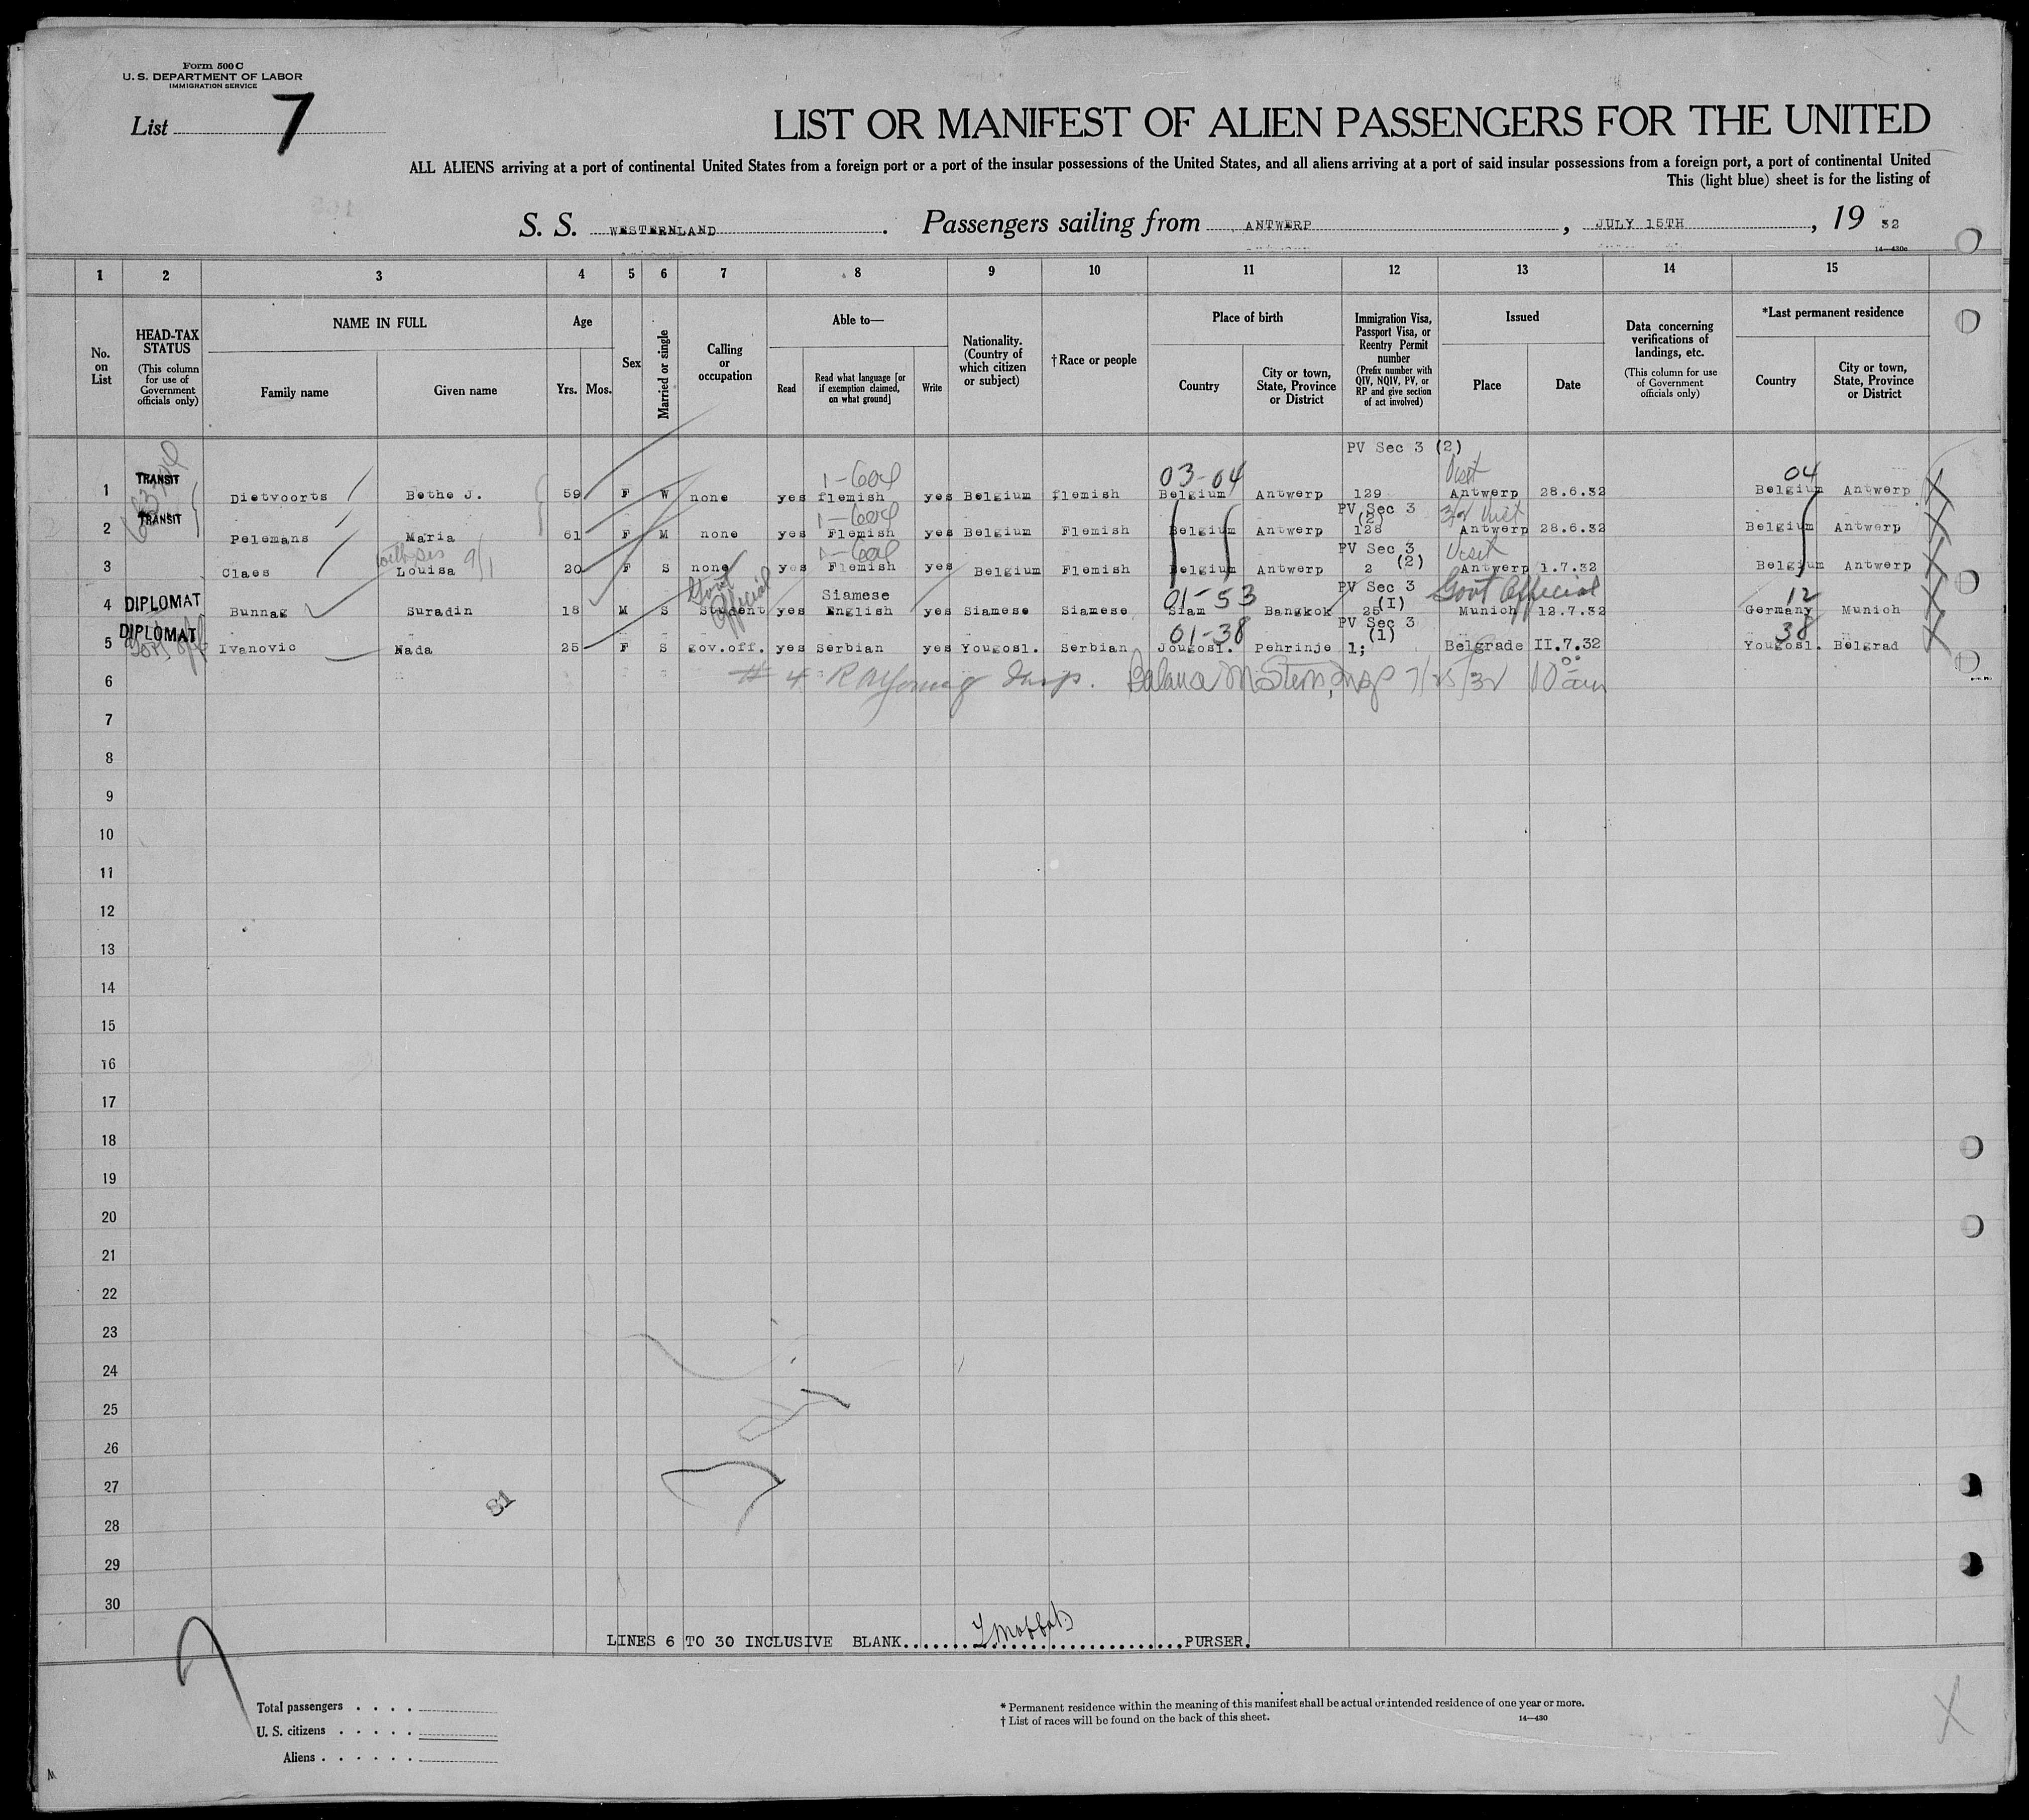 Form 500 C
U. S. DEPARTMENT OF LABOR
IMMIGRATION SERVICE
List 7
LIST OR MANIFEST OF ALIEN PASSENGERS FOR THE UNITED
ALL ALIENS arriving at a port of continental United States from a foreign port or a port of the insular possessions of the United States, and all aliens arriving at a port of said insular possessions from a foreign port, a port of continental United
This (light blue) sheet is for the listing of
S. S. WESTERNLAND. Passengers sailing from ANTWERP, JULY 15TH, 19 32
14—430c
1 2 3 4 5 6 7 8 9 10 11 12 13 14 15
No. on List
HEAD-TAX STATUS
(This column for use of Government officials only)
NAME IN FULL
Family name
Given name
Age
Yrs. Mos.
Sex
Married or single
Calling or occupation
Able to—
Read
Read what language [or if exemption claimed, on what ground]
Write
Nationality. (Country of which citizen or subject)
†Race or people
Place of birth
Country
City or town, State, Province or District
Immigration Visa, Passport Visa, or Reentry Permit number
(Prefix number with QIV, NQIV, PV, or RP and give section of act involved)
Issued
Place
Date
Data concerning verifications of landings, etc.
(This column for use of Government officials only)
*Last permanent residence
Country
City or town, State, Province or District
PV Sec 3 (2)
TRANSIT 1-604 03-04 Visit 04
1 Dietvoorts Bethe J. 59 F W none yes flemish yes Belgium flemish Belgium Antwerp 129 Antwerp 28.6.32 Belgium Antwerp
TRANSIT 1-604 PV Sec 3 (2) Visit
2 Pelemans Maria 61 F M none yes Flemish yes Belgium Flemish Belgium Antwerp 128 Antwerp 28.6.32 Belgium Antwerp
9/1 1-604 PV Sec 3 (2) Visit
3 Claes Louisa 20 F S none yes Flemish yes Belgium Flemish Belgium Antwerp 2 Antwerp 1.7.32 Belgium Antwerp
DIPLOMAT Govt Official Siamese 01-53 PV Sec 3 (I) Govt Official 12
4 Bunnag Suradin 18 M S Student yes English yes Siamese Siamese Siam Bangkok 25 Munich 12.7.32 Germany Munich
DIPLOMAT 01-38 PV Sec 3 (1) 38
5 Ivanovic Nada 25 F S gov.off. yes Serbian yes Yougosl. Serbian Jougosl. Pehrinje 1; Belgrade II.7.32 Yougosl. Belgrad
6 # 4 Insp. 7/25/32 10 am
7
8
9
10
11
12
13
14
15
16
17
18
19
20
21
22
23
24
25
26
27
81
28
29
30
LINES 6 TO 30 INCLUSIVE BLANK PURSER.
Total passengers
U. S. citizens
Aliens
* Permanent residence within the meaning of this manifest shall be actual or intended residence of one year or more.
† List of races will be found on the back of this sheet.
14—430